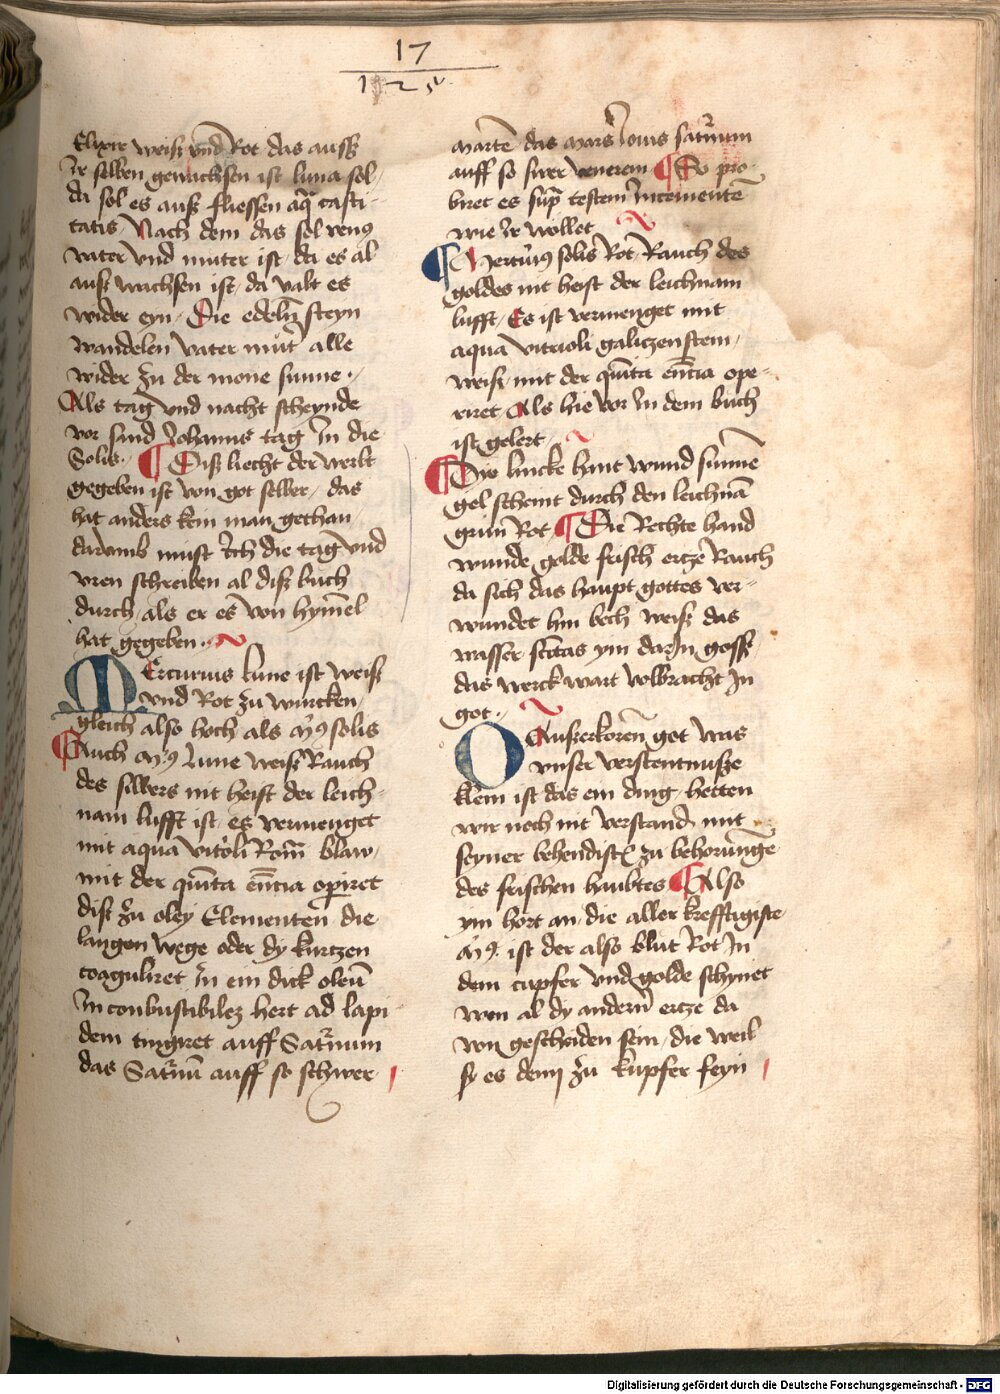 17
Elixir weiß vnd Rot das auß
Jr selben gewachsen ist luna sol
da sol es auß fliessen aq̄ casti-
tatis Nach dem das sol venꝰ
vater vnd muter ist da es al
auß wachsen ist da valt es
wider eyn Die edeln steyn
wandelen vater mut̄ alle
wider zu der mone sunne
Als tag vnd nacht scheynde
vor sand Johannis tag In die
Solis ¶ Diß liecht der werlt
gegeben ist von got selber das
hat anders kein man gethan
darvmb must Ich die tag vnd
vren schreiben al diß buch
durch als er es von hymel
hat gegeben
Mercurius lune ist weiß
vnd Rot zu wurcken
gleich also hoch als mꝰ solis
¶ Auch mꝰ lune weiß Rauch
des silbers nit heist der leich-
nam lufft ist es vermenget
mit aqua vitrioli Rom̄ blaw
mit der quīta eēncia operiret
dist zu oley Elementen die
langen wege oder dy kurtzen
coaguliret In ein dick oleū
Inconbustibilez hert ad lapi
dem tingiret auff Saturnum
das Saturnū auff so schwer
martē das mars Jouis saturnum
auff so swer venerem ¶ So pro-
biret es sup̄ testem Incementē
wie Jr wollet
¶ Mercuriꝰ solis Rot Rauch des
goldes nit heist der leichnam
lufft Es ist vermenget mit
aqua vitrioli galiczenstein
weiß mit der quīta eēncia ope-
riret Als hie vor In dem buch
ist gelert
¶ Dye lincke hant wund sunnē
gel scheint durch den leichnā
grun Rot ¶ Die Rechte hand
wunde golde frisch ertze Rauch
da sich das haupt gottes ver-
wundet hin bech weiß das
wasser ym darIn gosse
das werck wart volbracht In
got
O Außerkoren got was
vnser verstentnusze
klein ist das ein ding hetten
wir noch nit verstand mit
seyner behendist zu behorunge
des frischen haubtes ¶ Also
ym hort an die aller krefftigiste
mꝰ ist der also blut Rot In
dem cupfer vnd golde schynet
von al dy andern ertze da
von gescheiden sein die weil
sy es denn zu kupfer seyn
Digitalisierung gefördert durch die Deutsche Forschungsgemeinschaft - DFG